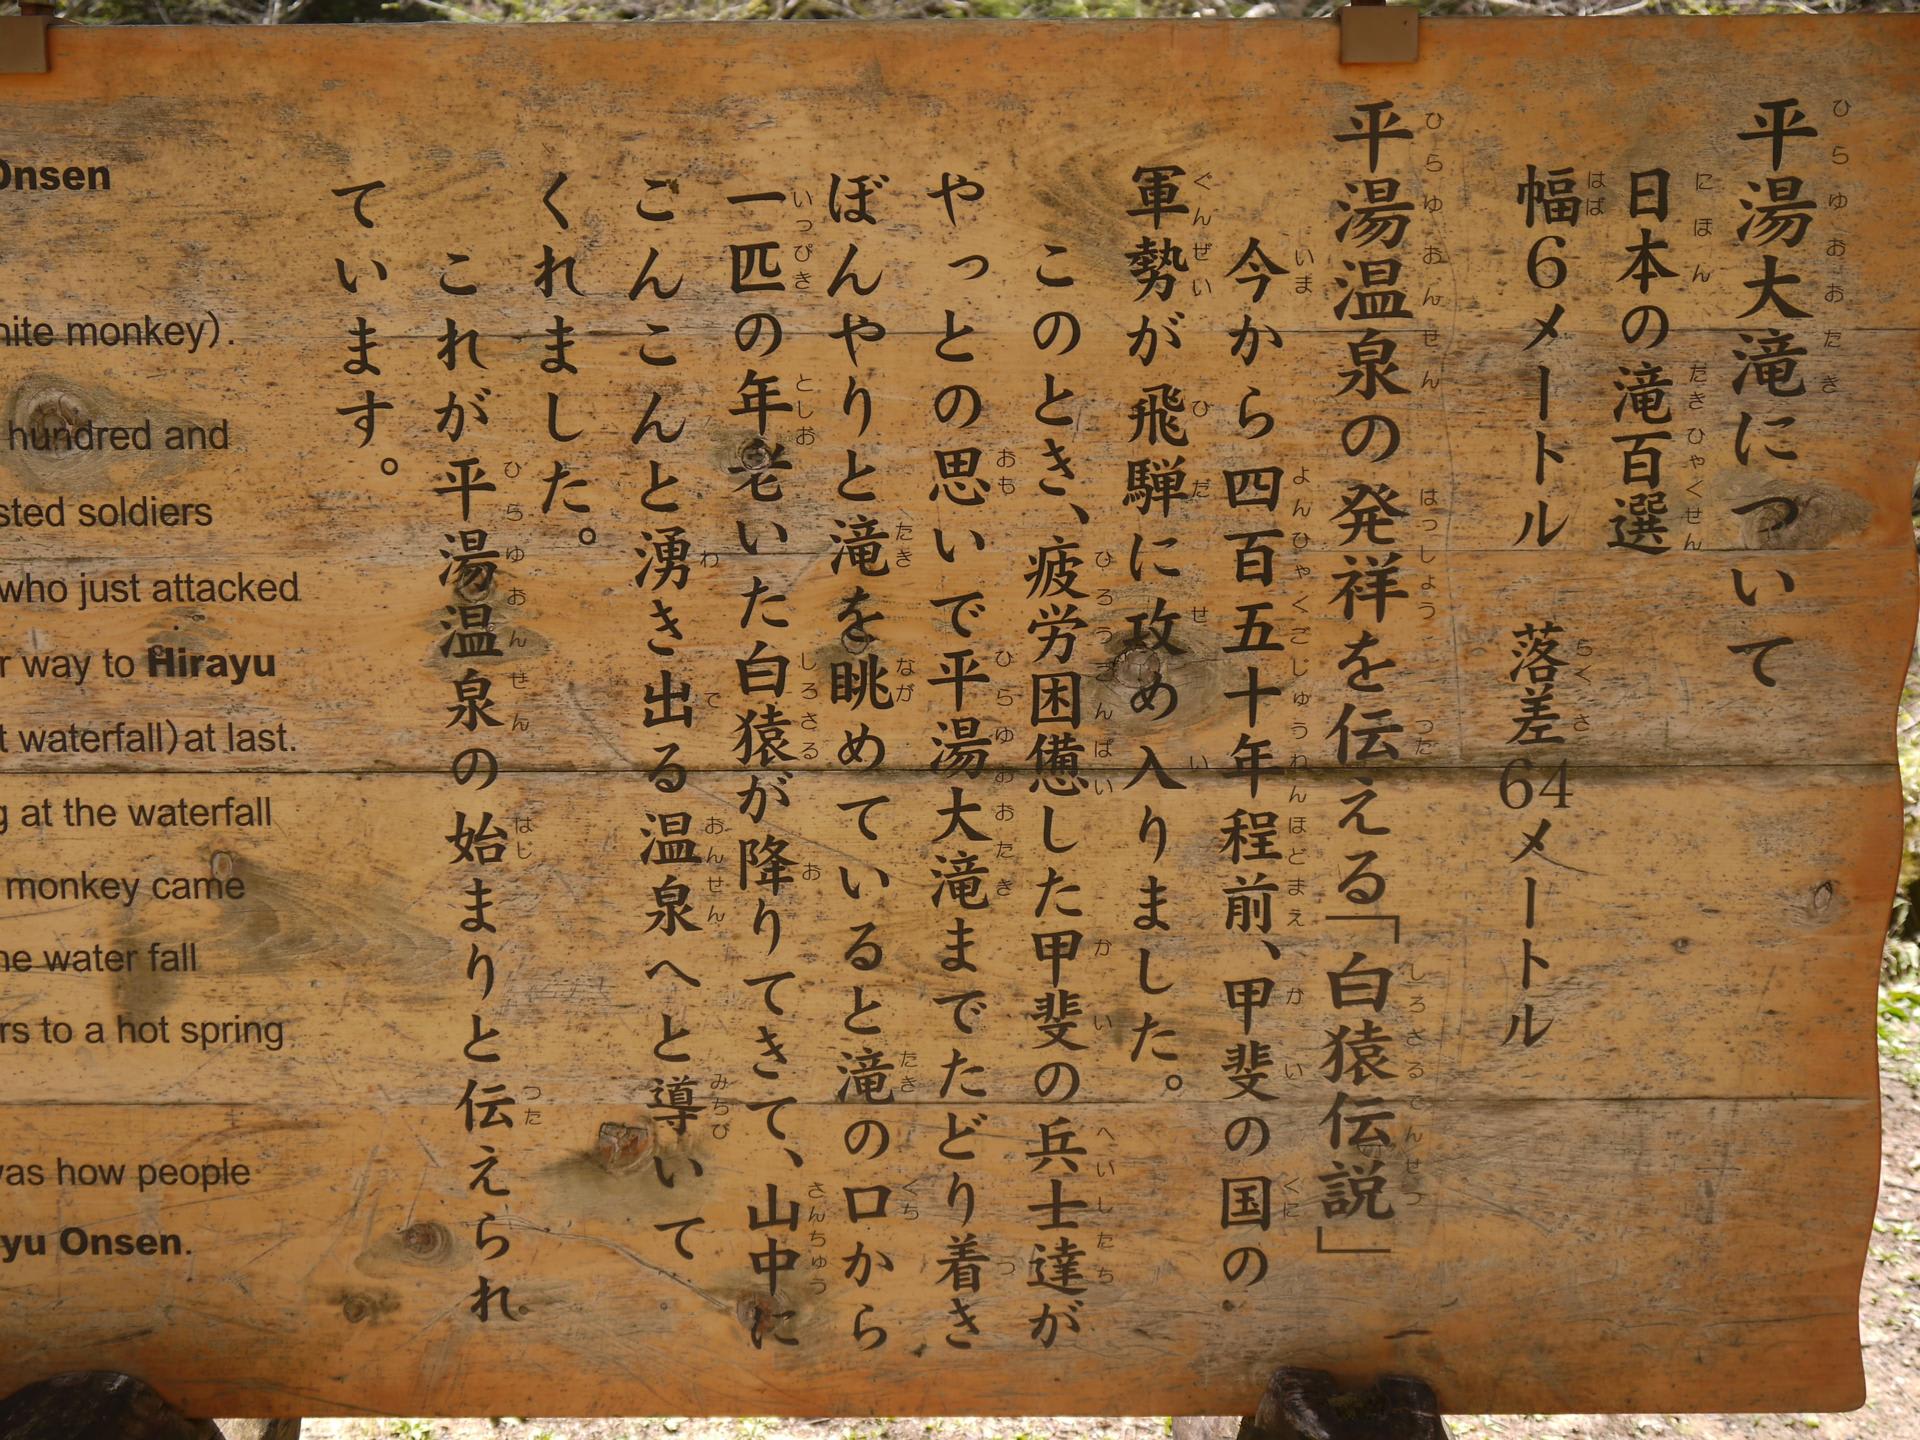 平湯大滝について
日本の滝百選
幅6メートル 落差64メートル
平湯温泉の発祥を伝える「白猿伝説」
今から四百五十年程前、甲斐の国の
軍勢が飛騨に攻め入りました。
このとき、疲労困憊した甲斐の兵士達が
やっとの思いで平湯大滝までたどり着き
ぼんやりと滝を眺めていると滝の口から
一匹の年老いた白猿が降りてきて、山中に
こんこんと湧き出る温泉へと導いて
くれました。
これが平湯温泉の始まりと伝えられ
ています。
Onsen
hite monkey).
hundred and
sted soldiers
who just attacked
r way to Hirayu
t waterfall) at last.
g at the waterfall
monkey came
he water fall
rs to a hot spring
was how people
yu Onsen.